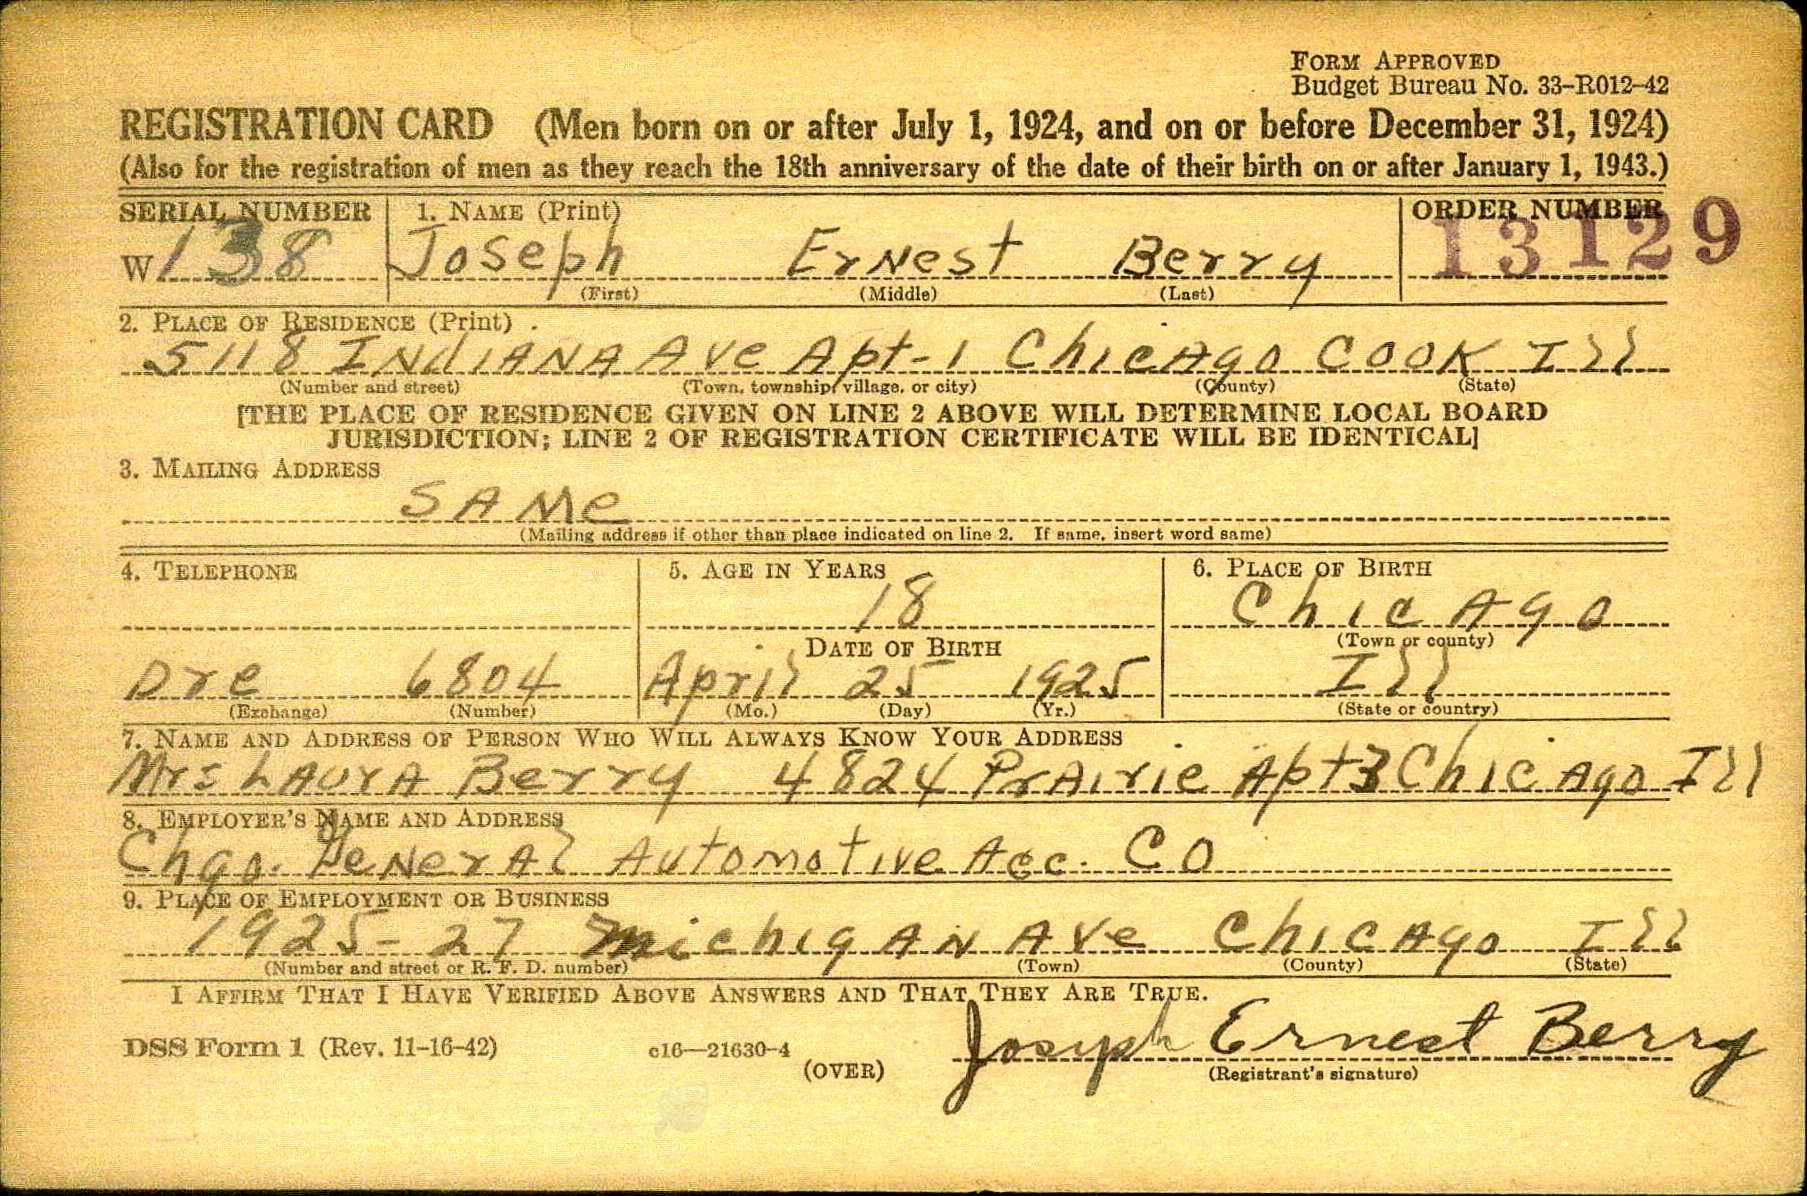 FORM APPROVED
Budget Bureau No. 33-R012-42
REGISTRATION CARD (Men born on or after July 1, 1924, and on or before December 31, 1924)
(Also for the registration of men as they reach the 18th anniversary of the date of their birth on or after January 1, 1943.)
SERIAL NUMBER 1. NAME (Print) ORDER NUMBER
W 138 Joseph Ernest Berry 13129
(First) (Middle) (Last)
2. PLACE OF RESIDENCE (Print)
5118 INdIANA Ave Apt-1 ChicAgo COOK Ill
(Number and street) (Town, township, village, or city) (County) (State)
[THE PLACE OF RESIDENCE GIVEN ON LINE 2 ABOVE WILL DETERMINE LOCAL BOARD
JURISDICTION; LINE 2 OF REGISTRATION CERTIFICATE WILL BE IDENTICAL]
3. MAILING ADDRESS
SAMe
(Mailing address if other than place indicated on line 2. If same, insert word same)
4. TELEPHONE 5. AGE IN YEARS 6. PLACE OF BIRTH
18 ChicAgo
DATE OF BIRTH (Town or county)
Dre 6804 April 25 1925 Ill
(Exchange) (Number) (Mo.) (Day) (Yr.) (State or country)
7. NAME AND ADDRESS OF PERSON WHO WILL ALWAYS KNOW YOUR ADDRESS
Mrs LAurA Berry 4824 PrAirie Apt 3 ChicAgo Ill
8. EMPLOYER'S NAME AND ADDRESS
Chgo. GeNerAl Automotive Acc. CO
9. PLACE OF EMPLOYMENT OR BUSINESS
1925-27 MichigAN Ave ChicAgo Ill
(Number and street or R. F. D. number) (Town) (County) (State)
I AFFIRM THAT I HAVE VERIFIED ABOVE ANSWERS AND THAT THEY ARE TRUE.
DSS Form 1 (Rev. 11-16-42) c16—21630-4 Joseph Ernest Berry
(OVER) (Registrant's signature)